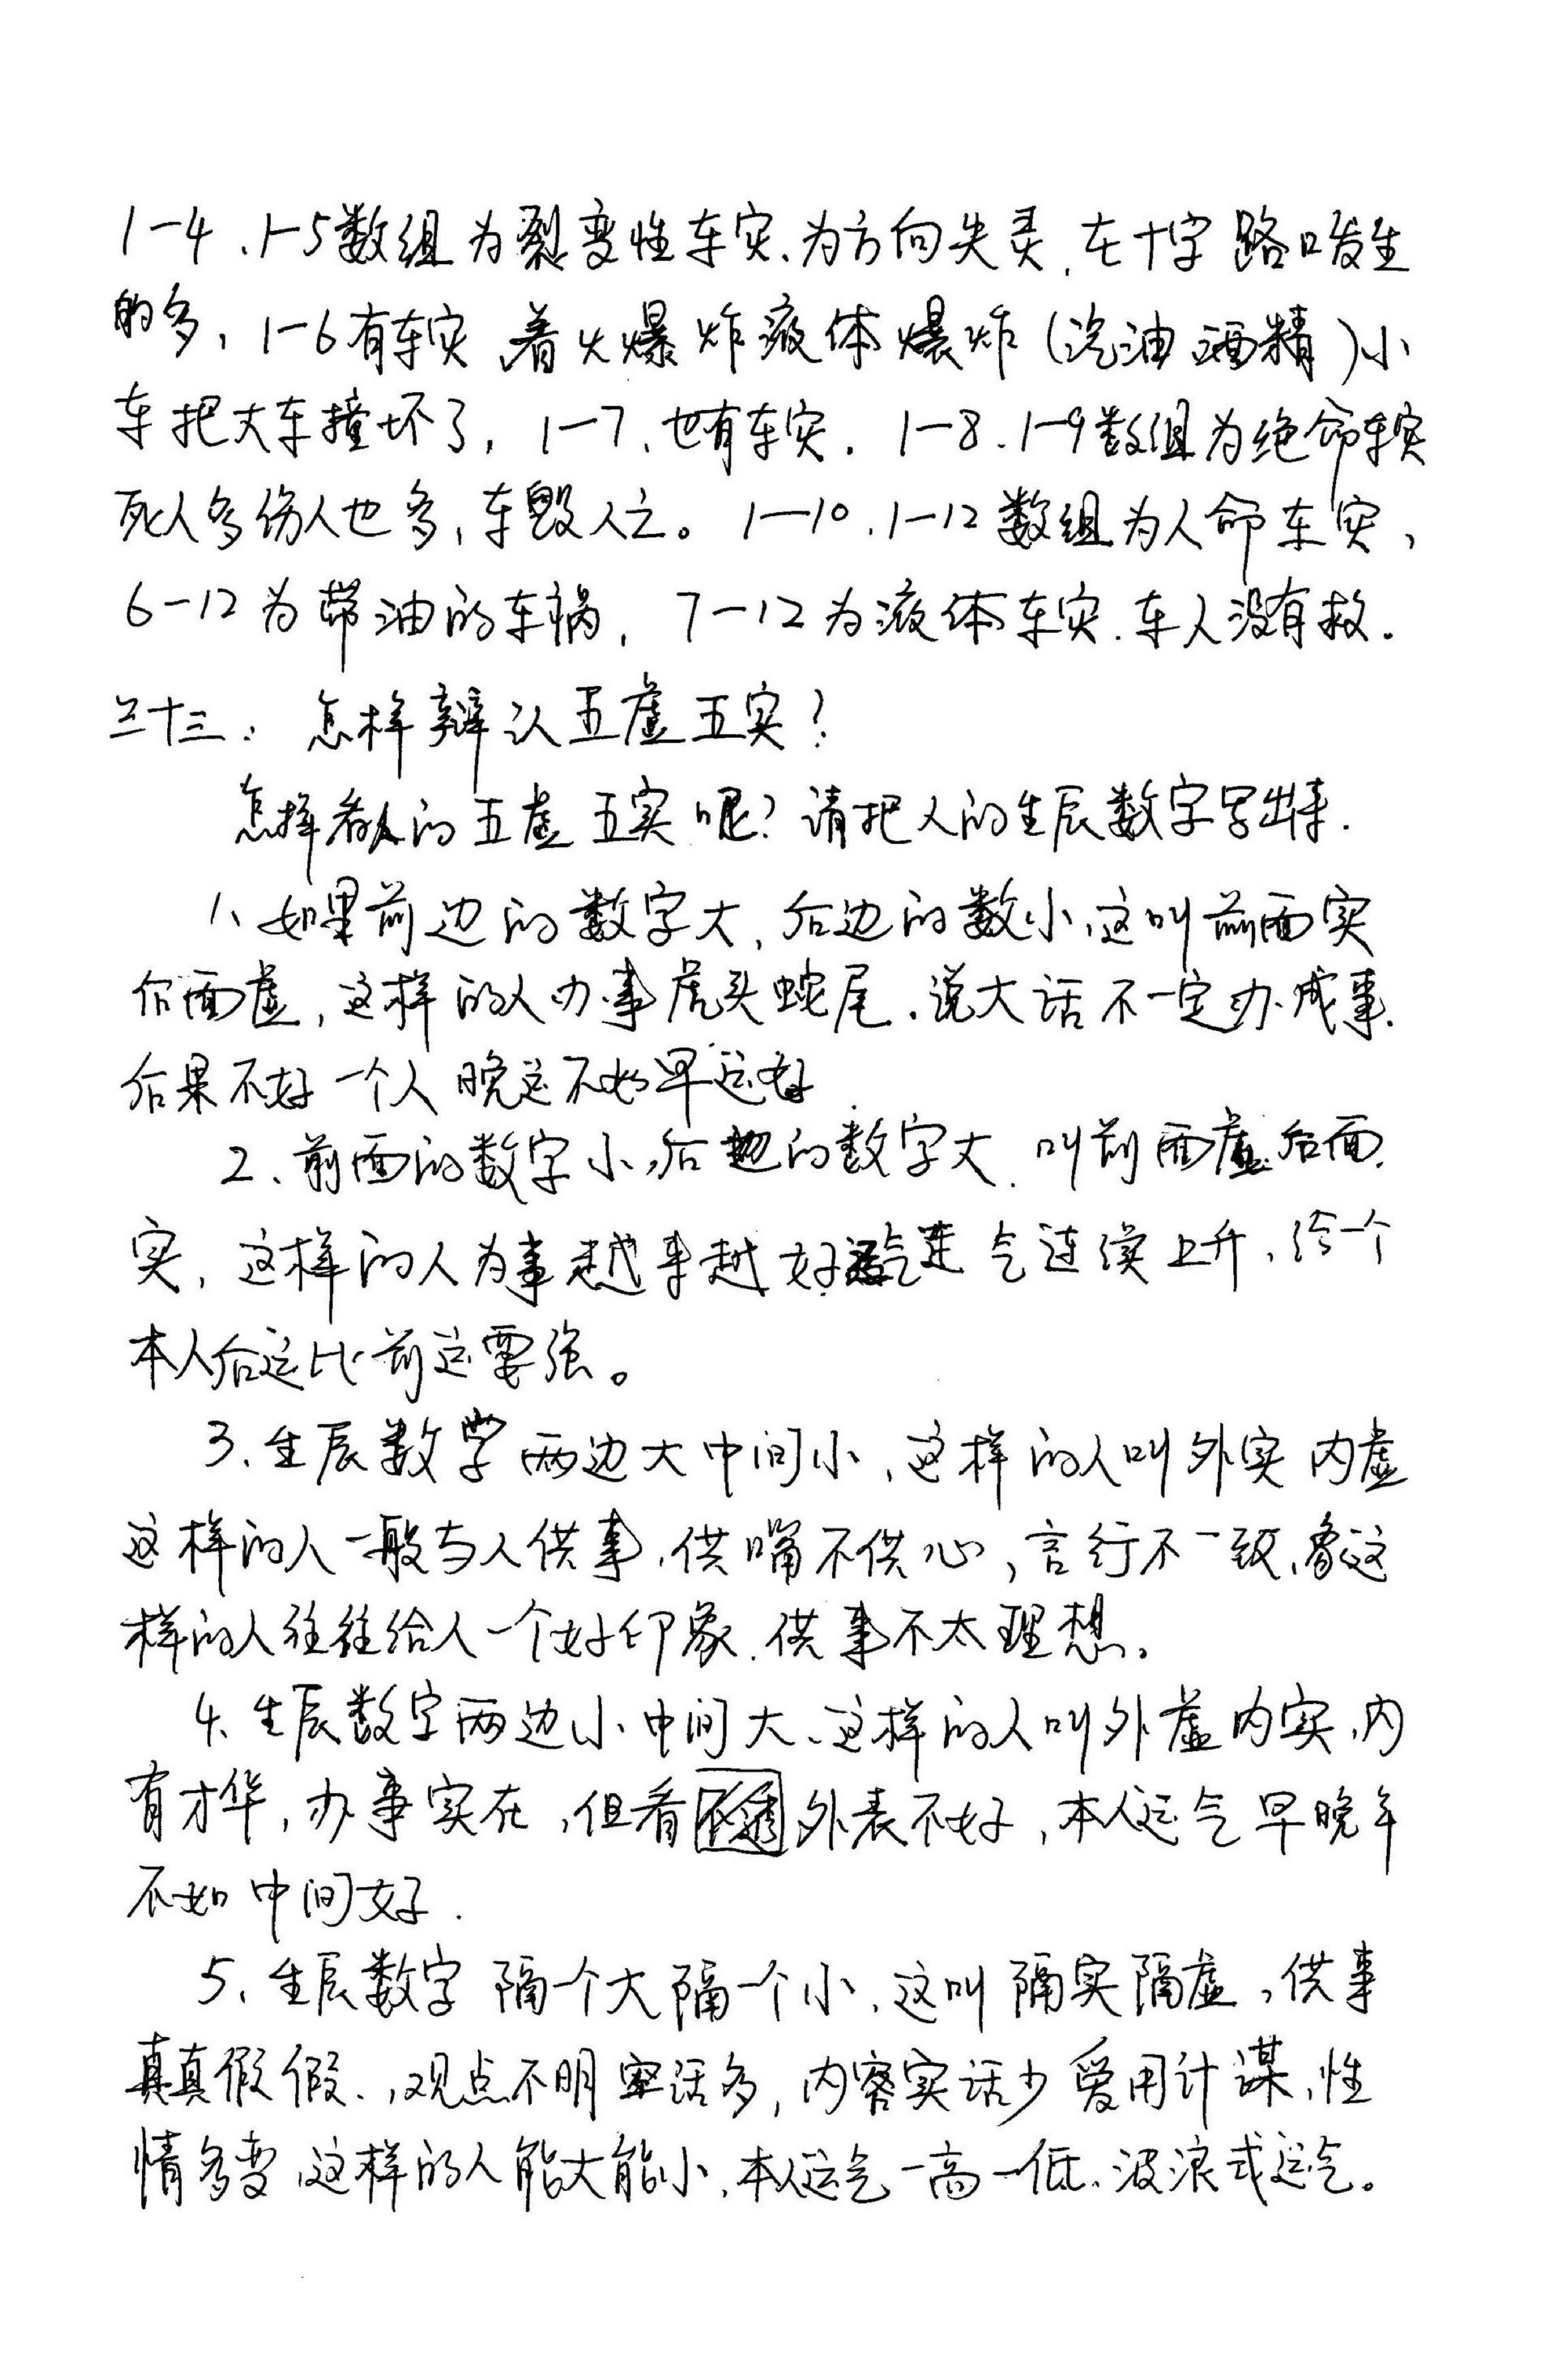 1-4、1-5数组为裂变性车灾、为方向失灵,在十字路口发生
的多,1-6有车灾 着火爆炸液体爆炸(汽油酒精)小
车把大车撞坏了,1-7、也有车灾.1-8.1-9数组为绝命车灾
死人多伤人也多,车毁人亡。1-10.1-12数组为人命车灾,
6-12为带油的车祸,7-12为液体车灾.车人没有救.
三十三:怎样辩认五虚五实?
怎样看人的五虚五实呢?请把人的生辰数字写出来.
1、如果前边的数字大,后边的数小,这叫前面实
后面虚,这样的人办事虎头蛇尾.说大话不一定办成事.
后果不好一个人晚运不如早运好
2、前面的数字小,后边的数字大.叫前面虚后面.
实,这样的人为事越来越好 气连续上升,给一个
本人后运比前运要强。
3、生辰数字两边大中间小,这样的人叫外实内虚
这样的人一般与人供事,供嘴不供心,言行不一致,看这
样的人往往给人一个好印象.供事不太理想。
4、生辰数字两边小中间大、这样的人叫外虚内实,内
有才华,办事实在,但看外表不好,本人运气早晚年
不如中间好.
5、生辰数字隔一个大隔一个小,这叫隔实隔虚,供事
真真假假.,观点不明 话多,内容实话少爱用计谋,性
情多变,这样的人能大能小,本人运气一高一低.波浪式运气。